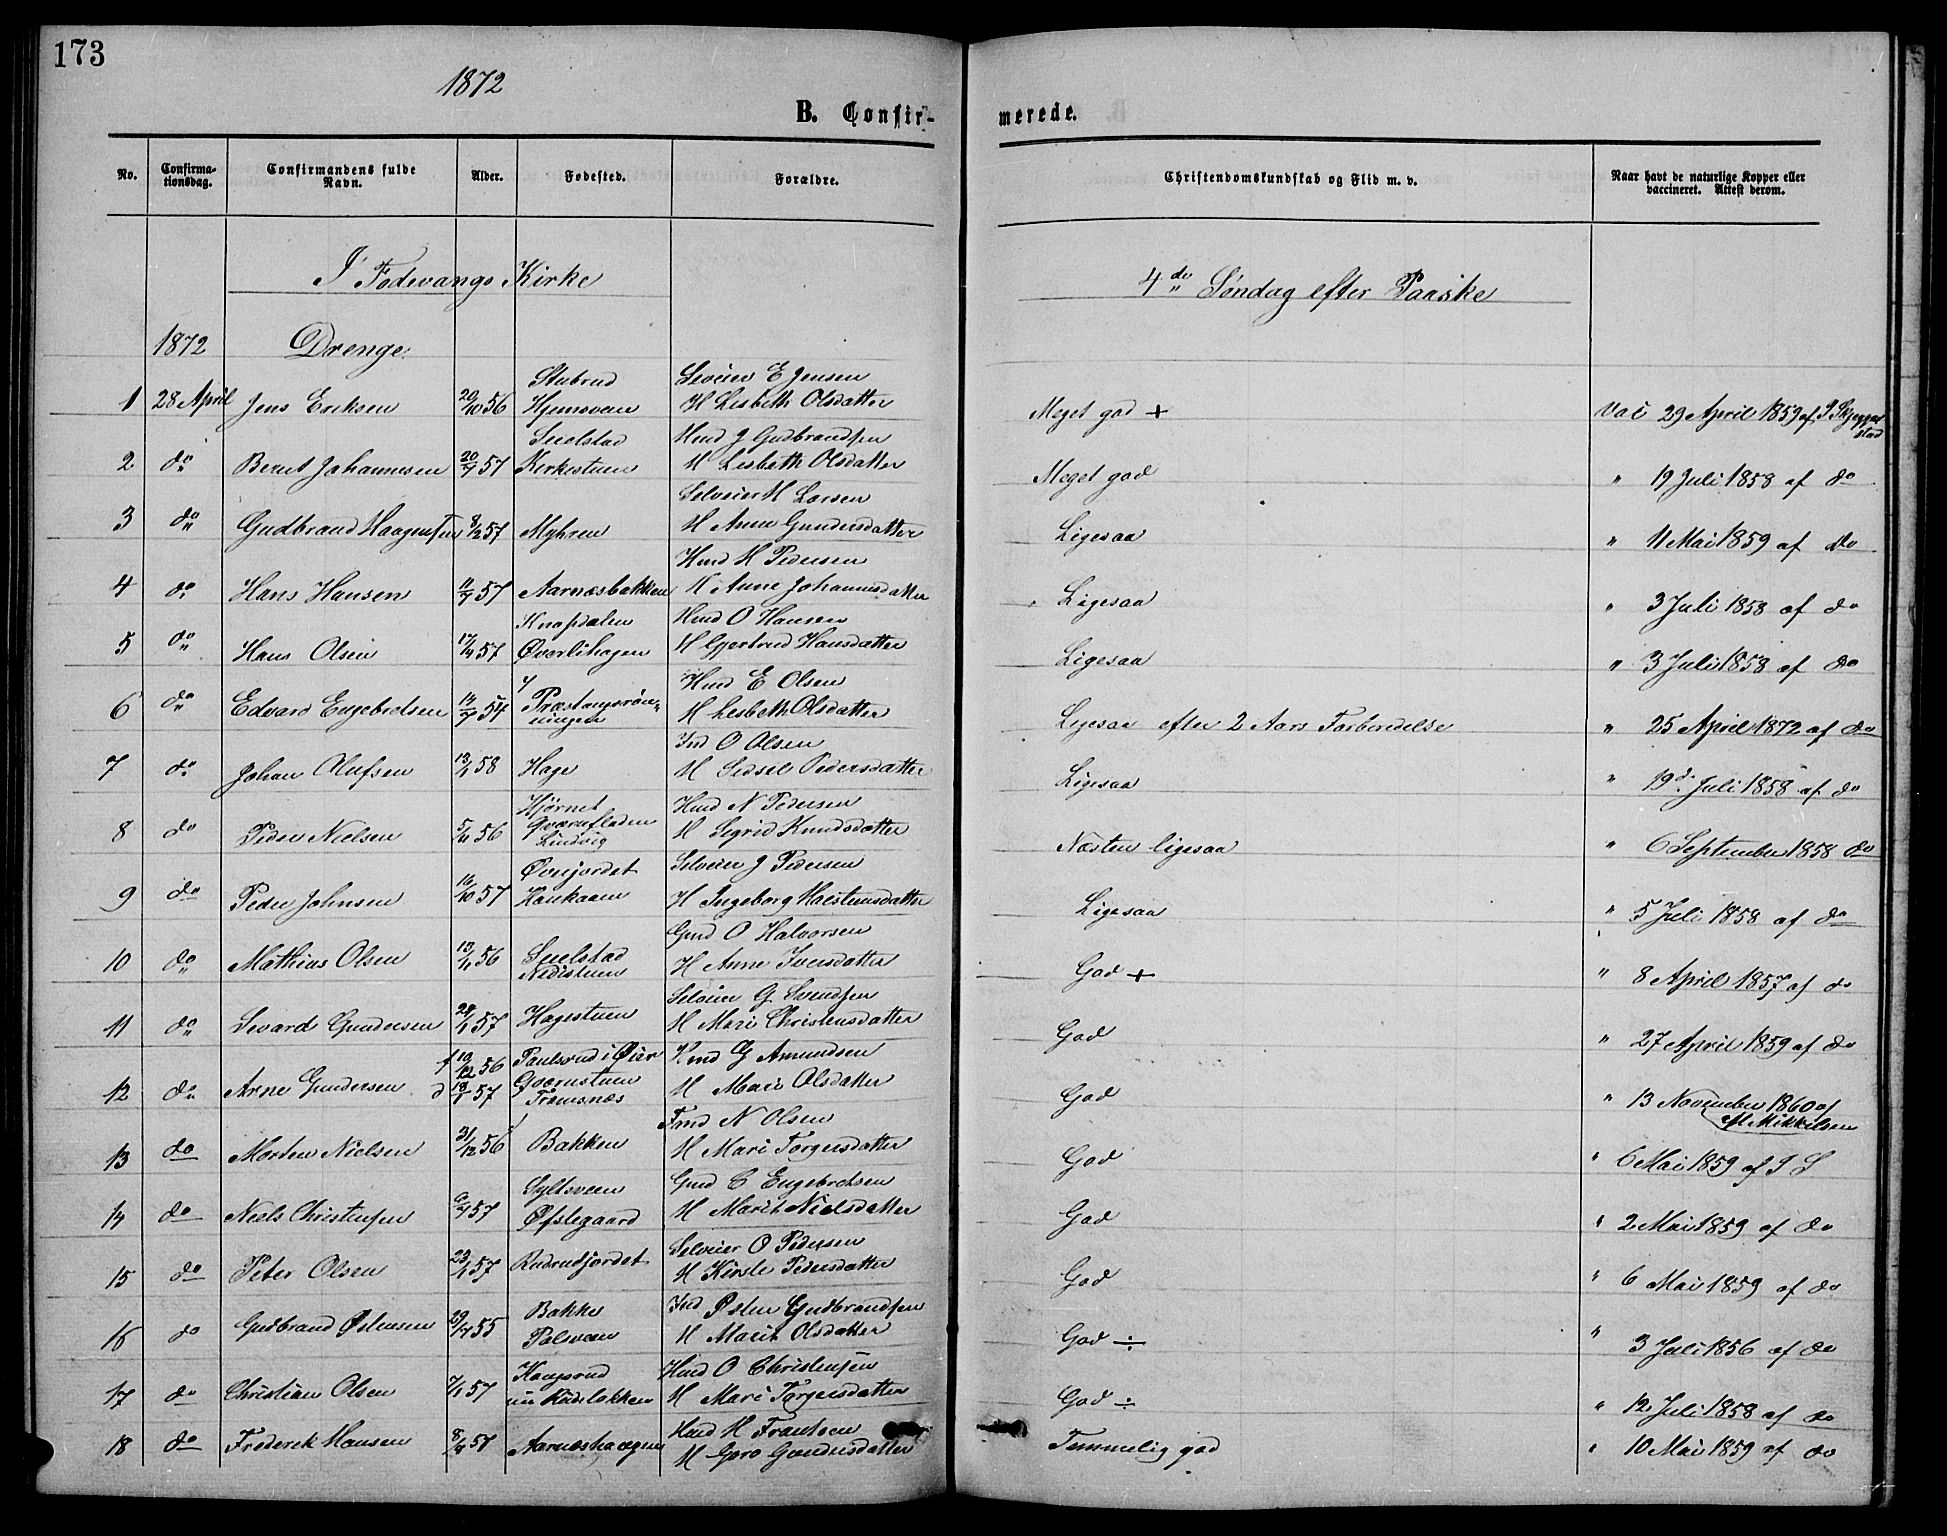 173
1872
B. Confir-
merede.
No.
Confirma-
tionsdag.
Confirmandens fulde
Navn.
Alder.
Fødested.
Forældre.
Christendomskundskab og Flid m. v.
Naar havt de naturlige Kopper eller
vaccineret. Attest derom.
I Fodvangs Kirke
4de Søndag efter Paaske
1872 Drenge
Stubrud E Jensen
1 28 April Jens Eriksen 20/10 56 Hjemsveen M Lisbeth Olsdatter Meget god + Vac 29 April 1859 af
Suelstad Hmd J Gudbrandsen
2 do Bernt Johannesen 20/7 57 Kirkestuen M Lisbeth Olsdatter Meget god " 19 Juli 1858 af do
Selveier H Larsen
3 do Gudbrand Haagensen 8/12 57 Myhren M Anne Gundersdatter Ligesaa " 11 Mai 1859 af do
Hmd H Pedersen
4 do Hans Hansen 57 Aarnæsbakken M Anne Johannesdatter Ligesaa " 3 Juli 1858 af do
Knapdalen Hmd O Hansen
5 do Hans Olsen 57 Øverlihagen M Gjertrud Hansdatter Ligesaa " 3 Juli 1858 af do
Hmd E Olsen
6 do Edvard Engebretsen 54 M Lisbeth Olsdatter Ligesaa efter 2 Aars Forberedelse " 25 April 1872 af do
Ind O Olsen
7 do Johan Olufsen 13/1 58 Hage M Sidsel Pedersdatter Ligesaa " 19d Juli 1858 af do
Hjørnet Hmd N Pedersen
8 do Peder Nielsen 56 Qværnfladen M Sigrid Knudsdatter Næsten ligesaa " 6 September 1858 do
Lindvig
Øvrejordet Selveier J Pedersen
9 do Peder Johnsen 16/10 57 M Ingeborg Ligesaa " 5 Juli 1858 af do
Gmd O Halvorsen
10 do Mathias Olsen 56 Suelstad M Anne Iversdatter God + " 8 April 1857 af do
Nedistuen
Selveier G Svendsen
11 do Sevard Gundersen 57 Hagestuen M Mari Christensdatter God " 27 April 1859 af do
f 19/12 56 Paulsrud i Øier Hmd G Amundsen
12 do Arne Gundersen d 18/1 57 Qværnstuen M Mari Olsdatter God " 13 November 1860 af
Tromsnæs M Mikkelsen
N Olsen
13 do Morten Nielsen 31/12 56 Bakken M Mari Torgersdatter God " 6 Mai 1859 af
Syltsveen Gmd C Engebretsen
14 do Niels Christensen 57 Øfslegaard M Marit Nielsdatter God " 2 Mai 1859 af do
Selveier O Pedersen
15 do Peter Olsen 57 Rudrudjordet M Kirsti Pedersdatter God " 6 Mai 1859 af do
Bakke Ind Østen Gudbrandsen
16 do Gudbrand Østensen 55 M Marit Olsdatter God ÷ " 3 Juli 1856 af do
Hmd O Christensen
17 do Christian Olsen 57 M Mari Torgersdatter God ÷ " 12 Juli 1858 af do
Hmd H Frantsen
18 do Frederik Hansen 57 Aarnæshaagen M Goro Gundersdatter Temmelig god " 10 Mai 1859 af do